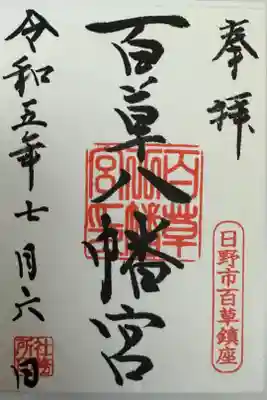 奉拝
日野市百草鎮座
百草八幡宮
百草八幡宮印
令和五年七月六日
社務所